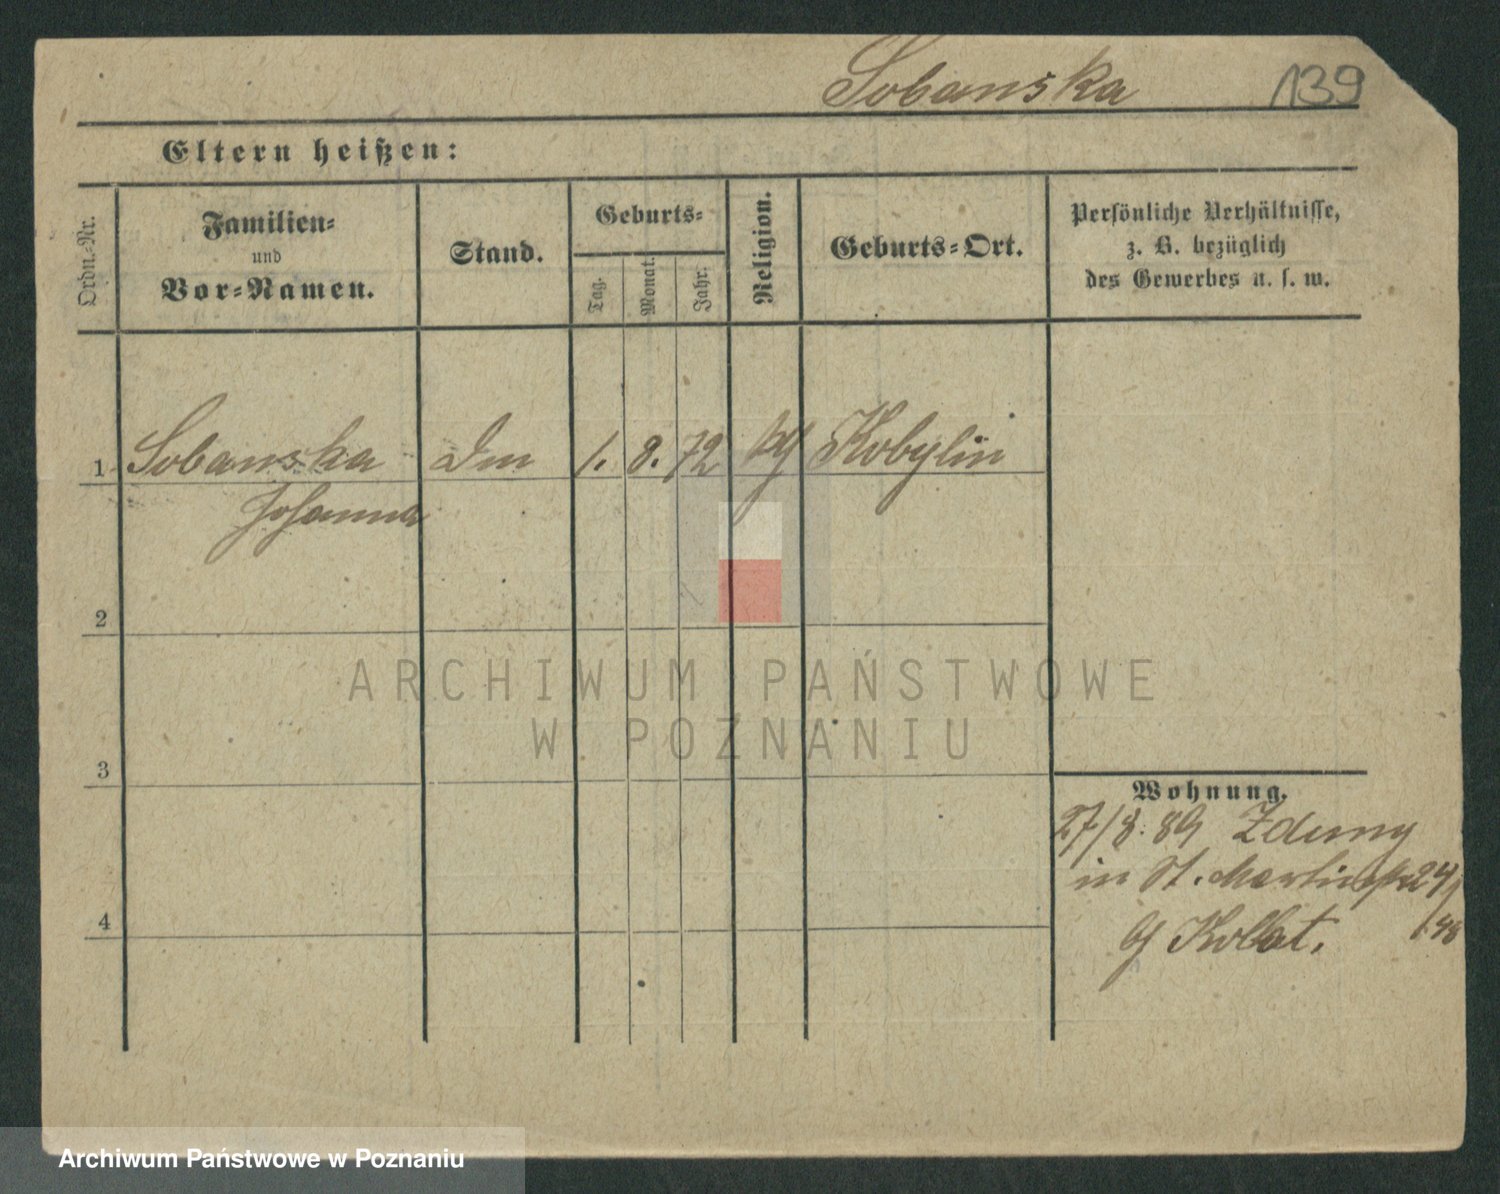 Sobanska 139
Eltern heißen:
Ordn.-Nr.
Familien-
und
Vor-Namen.
Stand.
Geburts-
Tag.
Monat.
Jahr.
Religion.
Geburts-Ort.
Persönliche Verhältnisse,
z. B. bezüglich
des Gewerbes u. s. w.
1 Sobanska 1. 8. 72 Kobylin
Johanna
2
3
4
Wohnung.
27/8. 89 Zduny
in St. Martinstr 24
Kollat.
ARCHIWUM PAŃSTWOWE
W POZNANIU
Archiwum Państwowe w Poznaniu